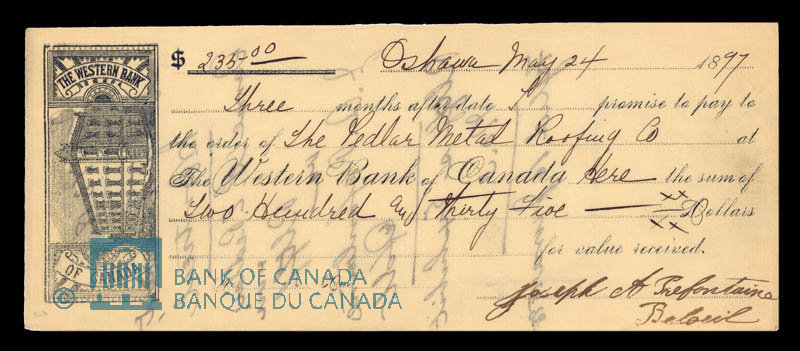 THE WESTERN BANK
OF
$ 235.00 Oshawa May 24 1897
Three months after date I promise to pay to
the order of The Pedlar Metal Roofing Co at
The Western Bank of Canada Here the sum of
Two Hundred and Thirty Five xx/xx Dollars
for value received.
Joseph A Prefontaine
Beloeil
© BANK OF CANADA
BANQUE DU CANADA